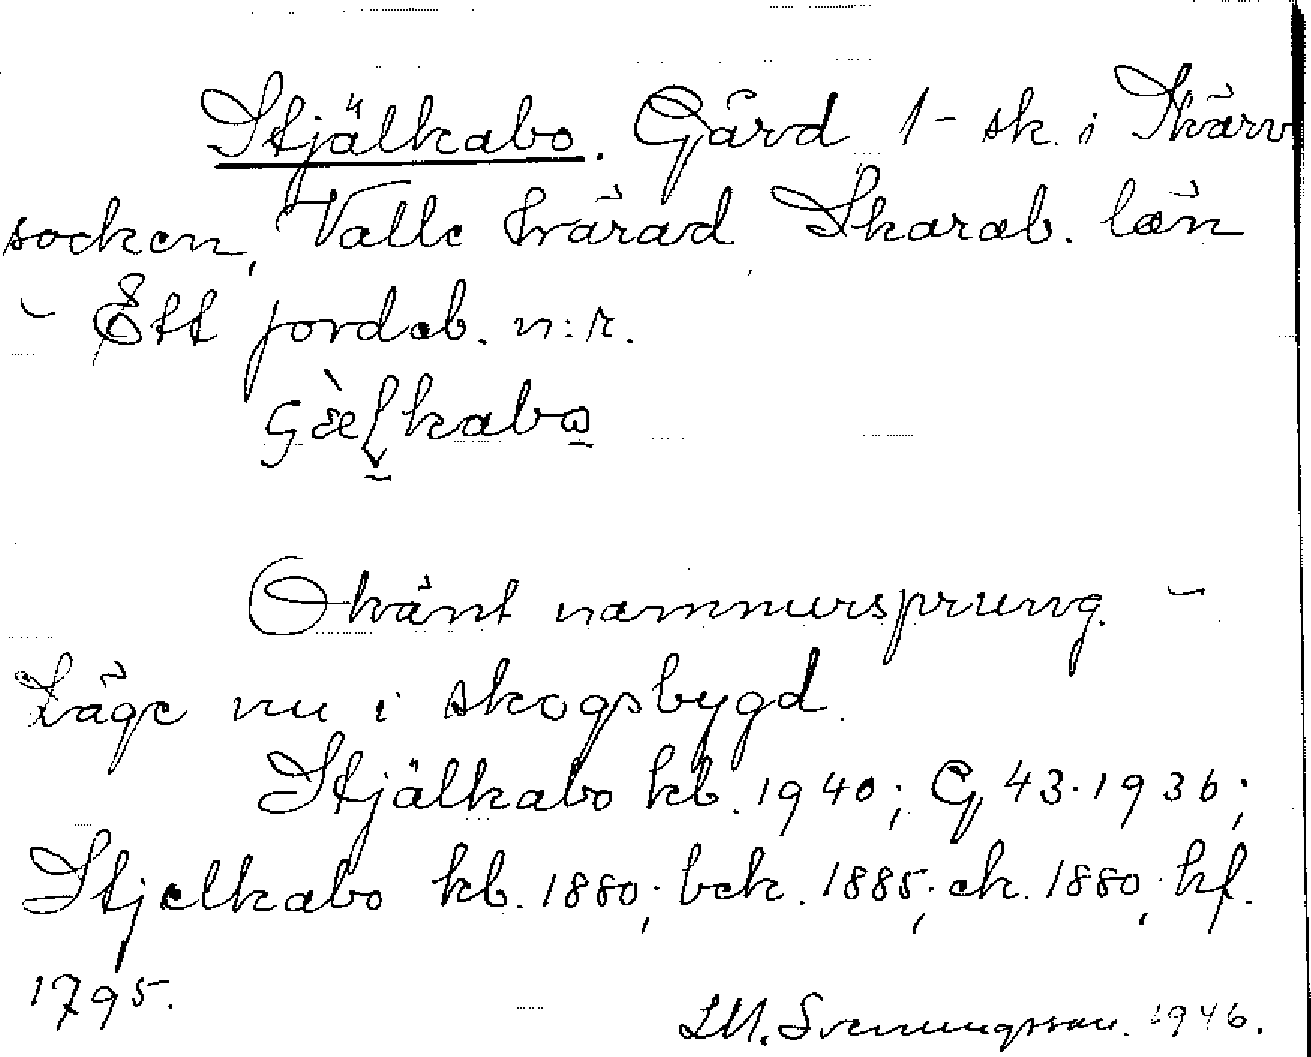 Stjälkabo. Gård 1 - sk. i Skärv
socken, Valle härad Skarab. län
- Ett jordeb. n:r.
Okänt namnursprung. -
Läge nu i skogsbygd.
Stjälkabo kb. 1940; G, 43. 1936;
Stjelkabo kb. 1880; bek. 1885; ek. 1880; kf.
1795.
LM. Svenungsson. 1946.